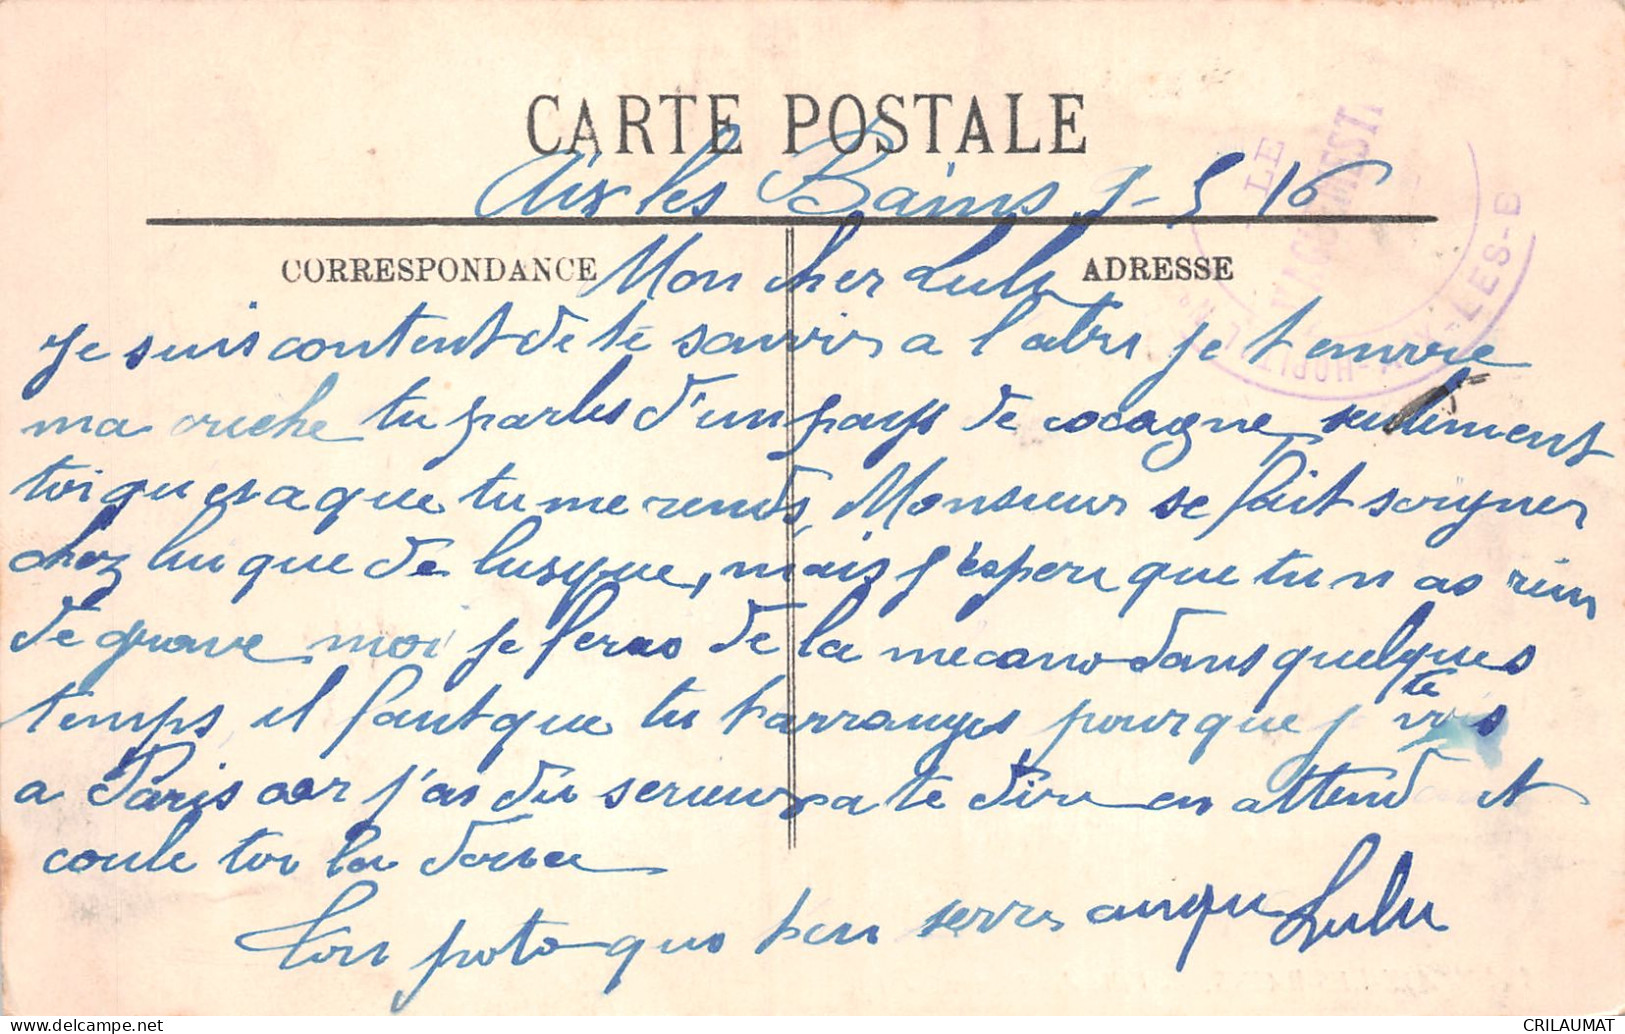 CARTE POSTALE
Aix les Bains 9-5 16
CORRESPONDANCE Mon cher Lulu ADRESSE
Je suis content de te savoir a l'abri je t envoie
ma cuche tu parles d'un pays de cocagne, seulement
toi qu es a que tu me rends, Monsieur se fait soigner
chez lui que de lusque, mais j'espere que tu n as rien
de grave moi je feras de la mecano dans quelques
temps, il faut que tu t'arranges pourque j te vois
a Paris car j'ai du serieux a te dire en attendant
coule toi la douce
Ton poto qui t en serre cinque Lulu
LE
VAGUEMEST
HOPIT AIX-LES-B
CRILAUMAT